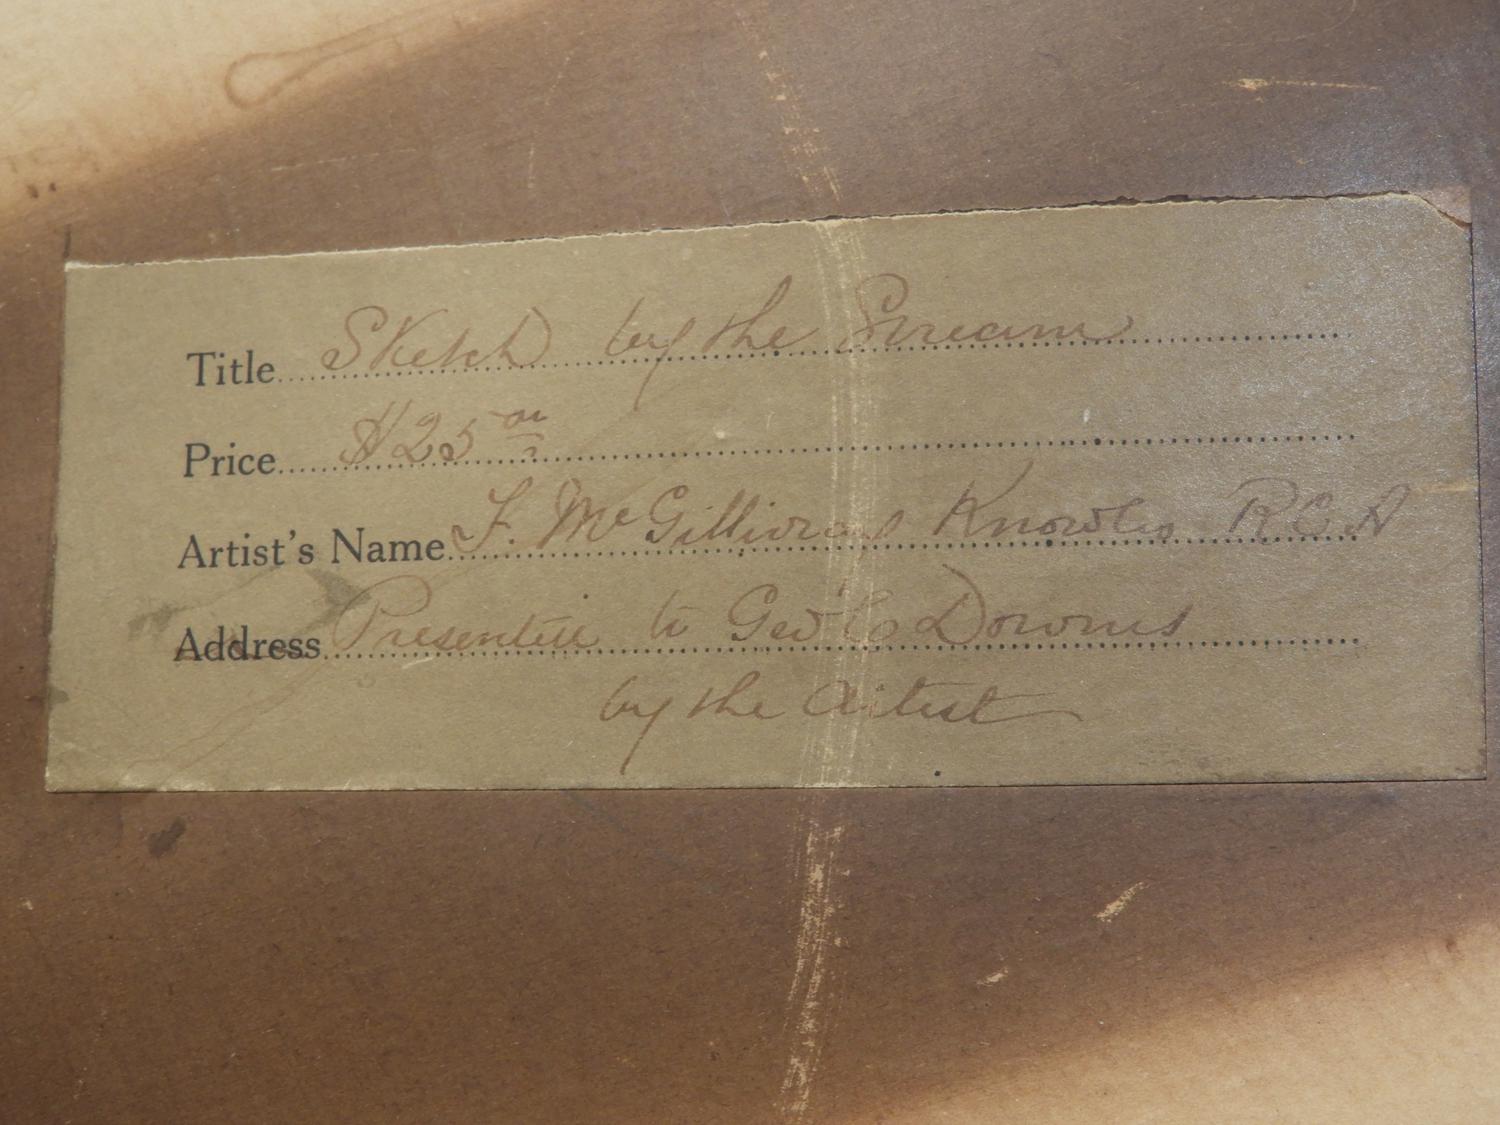 Title Sketch by the Stream
Price $25 00
Artist's Name F. McGillivray Knowles RCA
Address Presented to Geo C Downs
by the Artist